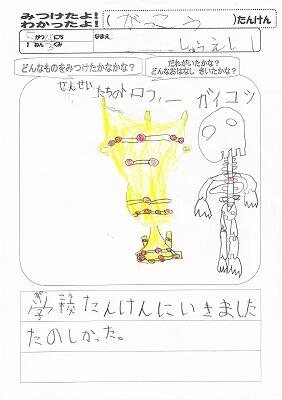 みつけたよ!
わかったよ!
(がっこう)たんけん
なまえ
1ねん
どんなものをみつけたかなかな?
だれがいたかな?
どんなおはなし きいたかな?
せんせいたちのトロフィー
ガイコツ
学校たんけんにいきました
たのしかった。